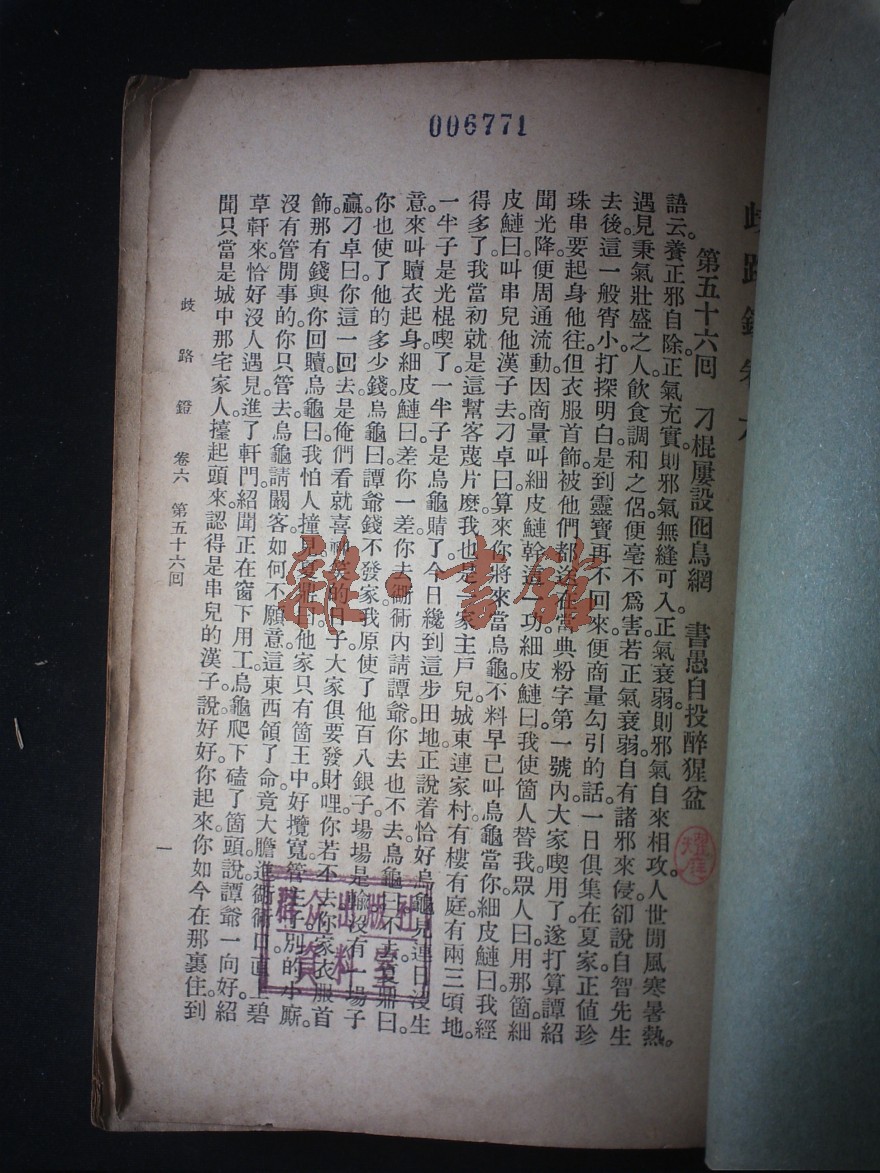 006771
歧路鐙卷六
第五十六回　刁棍屢設囮鳥網　書愚自投醉猩盆
語云。養正邪自除。正氣充實。則邪氣無縫可入。正氣衰弱。則邪氣自來相攻。人世間風寒暑熱。
遇見秉氣壯盛之人。飲食調和之侶。便毫不爲害。若正氣衰弱。自有諸邪來侵。卻說自智先生
去後。這一般宵小。打探明白。是到靈寶再不回來。便商量勾引的話。一日俱集在夏家。正值珍
珠串要起身他往。但衣服首飾被他們都送在當典粉字第一號內。大家喫用了。遂打算譚紹
聞光降。便周通流動。因商量叫細皮鰱幹這一功。細皮鰱曰。我使箇人替我。眾人曰。用那箇。細
皮鰱曰。叫串兒他漢子去。刁卓曰。算來你將來當烏龜。不料早已叫烏龜當你。細皮鰱曰。我經
得多了。我當初就是這幫客蔑片麽。我也是一家主戶兒。城東連家村有樓有庭。有兩三頃地。
一半子是光棍喫了。一半子是烏龜賭了。今日纔到這步田地。正說着。恰好烏龜見連日沒生
意。來叫贖衣起身。細皮鰱曰。差你一差。你去衚衕內請譚爺。你去也不去。烏龜曰。不去。夏鼎曰。
你也使了他的多少錢。烏龜曰。譚爺錢不發家。我原使了他百八銀子。場場是輸。沒有一場子
贏。刁卓曰。你這一回去。是俺們看就喜神笑的日子。大家俱要發財哩。你若不去。你家衣服首
飾那有錢與你回贖。烏龜曰。我怕人撞見。夏鼎曰。他家只有箇王中。好攬寬管主子。別的小廝。
沒有管閒事的。你只管去。烏龜請闞客。如何不願意。這東西領了命。竟大膽進衚衕口。直上碧
草軒來。恰好沒人遇見。進了軒門。紹聞正在窗下用工。烏龜爬下磕了箇頭。說譚爺一向好。紹
聞只當是城中那宅家人。擡起頭來。認得是串兒的漢子。說好好。你起來。你如今在那裏住。到
歧路鐙　卷六　第五十六回
一
雜·書館
群众出版社
資料室